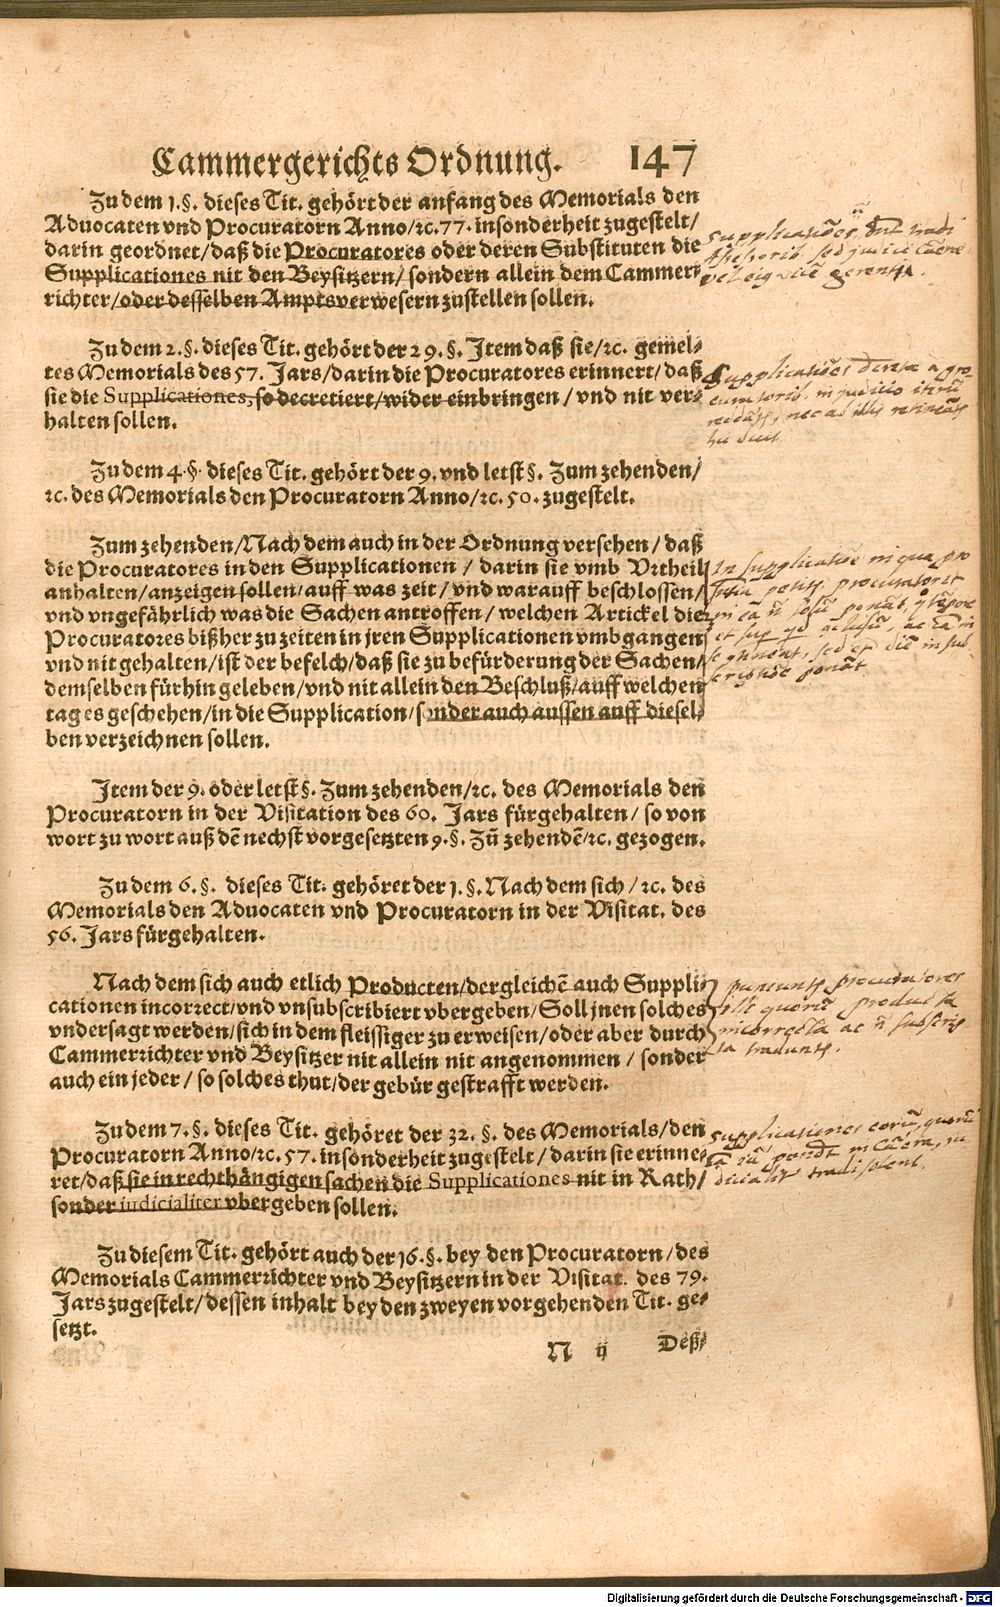 Cammergerichts Ordnung. 147
Zu dem 1.§. dieses Tit. gehört der anfang des Memorials den
Aduocaten vnd Procuratorn Anno/ꝛc.77. insonderheit zugestelt/
darin geordnet/daß die Procuratores oder deren Substituten die
Supplicationes nit den Beysitzern/sondern allein dem Cammer⸗
richter/oder desselben Amptsverwesern zustellen sollen.
Zu dem 2.§. dieses Tit. gehört der 29.§. Item daß sie/ꝛc. gemel⸗
tes Memorials des 57. Jars/darin die Procuratores erinnert/daß
sie die Supplicationes, so decretiert/wider einbringen/vnd nit ver⸗
halten sollen.
Zu dem 4.§. dieses Tit. gehört der 9. vnd letst §. Zum zehenden/
ꝛc. des Memorials den Procuratorn Anno/ꝛc. 50. zugestelt.
Zum zehenden/Nach dem auch in der Ordnung versehen/daß
die Procuratores in den Supplicationen/darin sie vmb Vrtheil
anhalten/anzeigen sollen/auff was zeit/vnd warauff beschlossen/
vnd vngefährlich was die Sachen antroffen/welchen Artickel die
Procuratores bißher zu zeiten in jren Supplicationen vmbgangen
vnd nit gehalten/ist der befelch/daß sie zu befürderung der Sachen/
demselben fürhin geleben/vnd nit allein den Beschluß/auff welchen
tag es geschehen/in die Supplication/sonder auch aussen auff diesel⸗
ben verzeichnen sollen.
Item der 9. oder letst §. Zum zehenden/ꝛc. des Memorials den
Procuratorn in der Visitation des 60. Jars fürgehalten/so von
wort zu wort auß dē nechst vorgesetzten 9.§. Zū zehendē/ꝛc. gezogen.
Zu dem 6.§. dieses Tit. gehöret der 1.§. Nach dem sich/ꝛc. des
Memorials den Aduocaten vnd Procuratorn in der Visitat. des
56. Jars fürgehalten.
Nach dem sich auch etlich Producten/dergleichē auch Suppli⸗
cationen incorrect/vnd vnsubscribiert vbergeben/Soll jnen solches
vndersagt werden/sich in dem fleissiger zu erweisen/oder aber durch
Cammerrichter vnd Beysitzer nit allein nit angenommen/sonder
auch ein jeder/so solches thut/der gebür gestrafft werden.
Zu dem 7.§. dieses Tit. gehöret der 32.§. des Memorials/den
Procuratorn Anno/ꝛc. 57. insonderheit zugestelt/darin sie erinne⸗
ret/daß sie in rechthängigen sachen die Supplicationes nit in Rath/
sonder iudicialiter vbergeben sollen.
Zu diesem Tit. gehört auch der 16.§. bey den Procuratorn/des
Memorials Cammerrichter vnd Beysitzern in der Visitat. des 79.
Jars zugestelt/dessen inhalt bey den zweyen vorgehenden Tit. ge⸗
setzt.
N ij Deß⸗
Digitalisierung gefördert durch die Deutsche Forschungsgemeinschaft - DFG